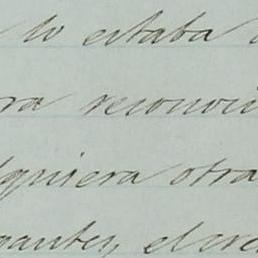 lo estaba
ra reconoci
lquiera otra
gantes, el cre